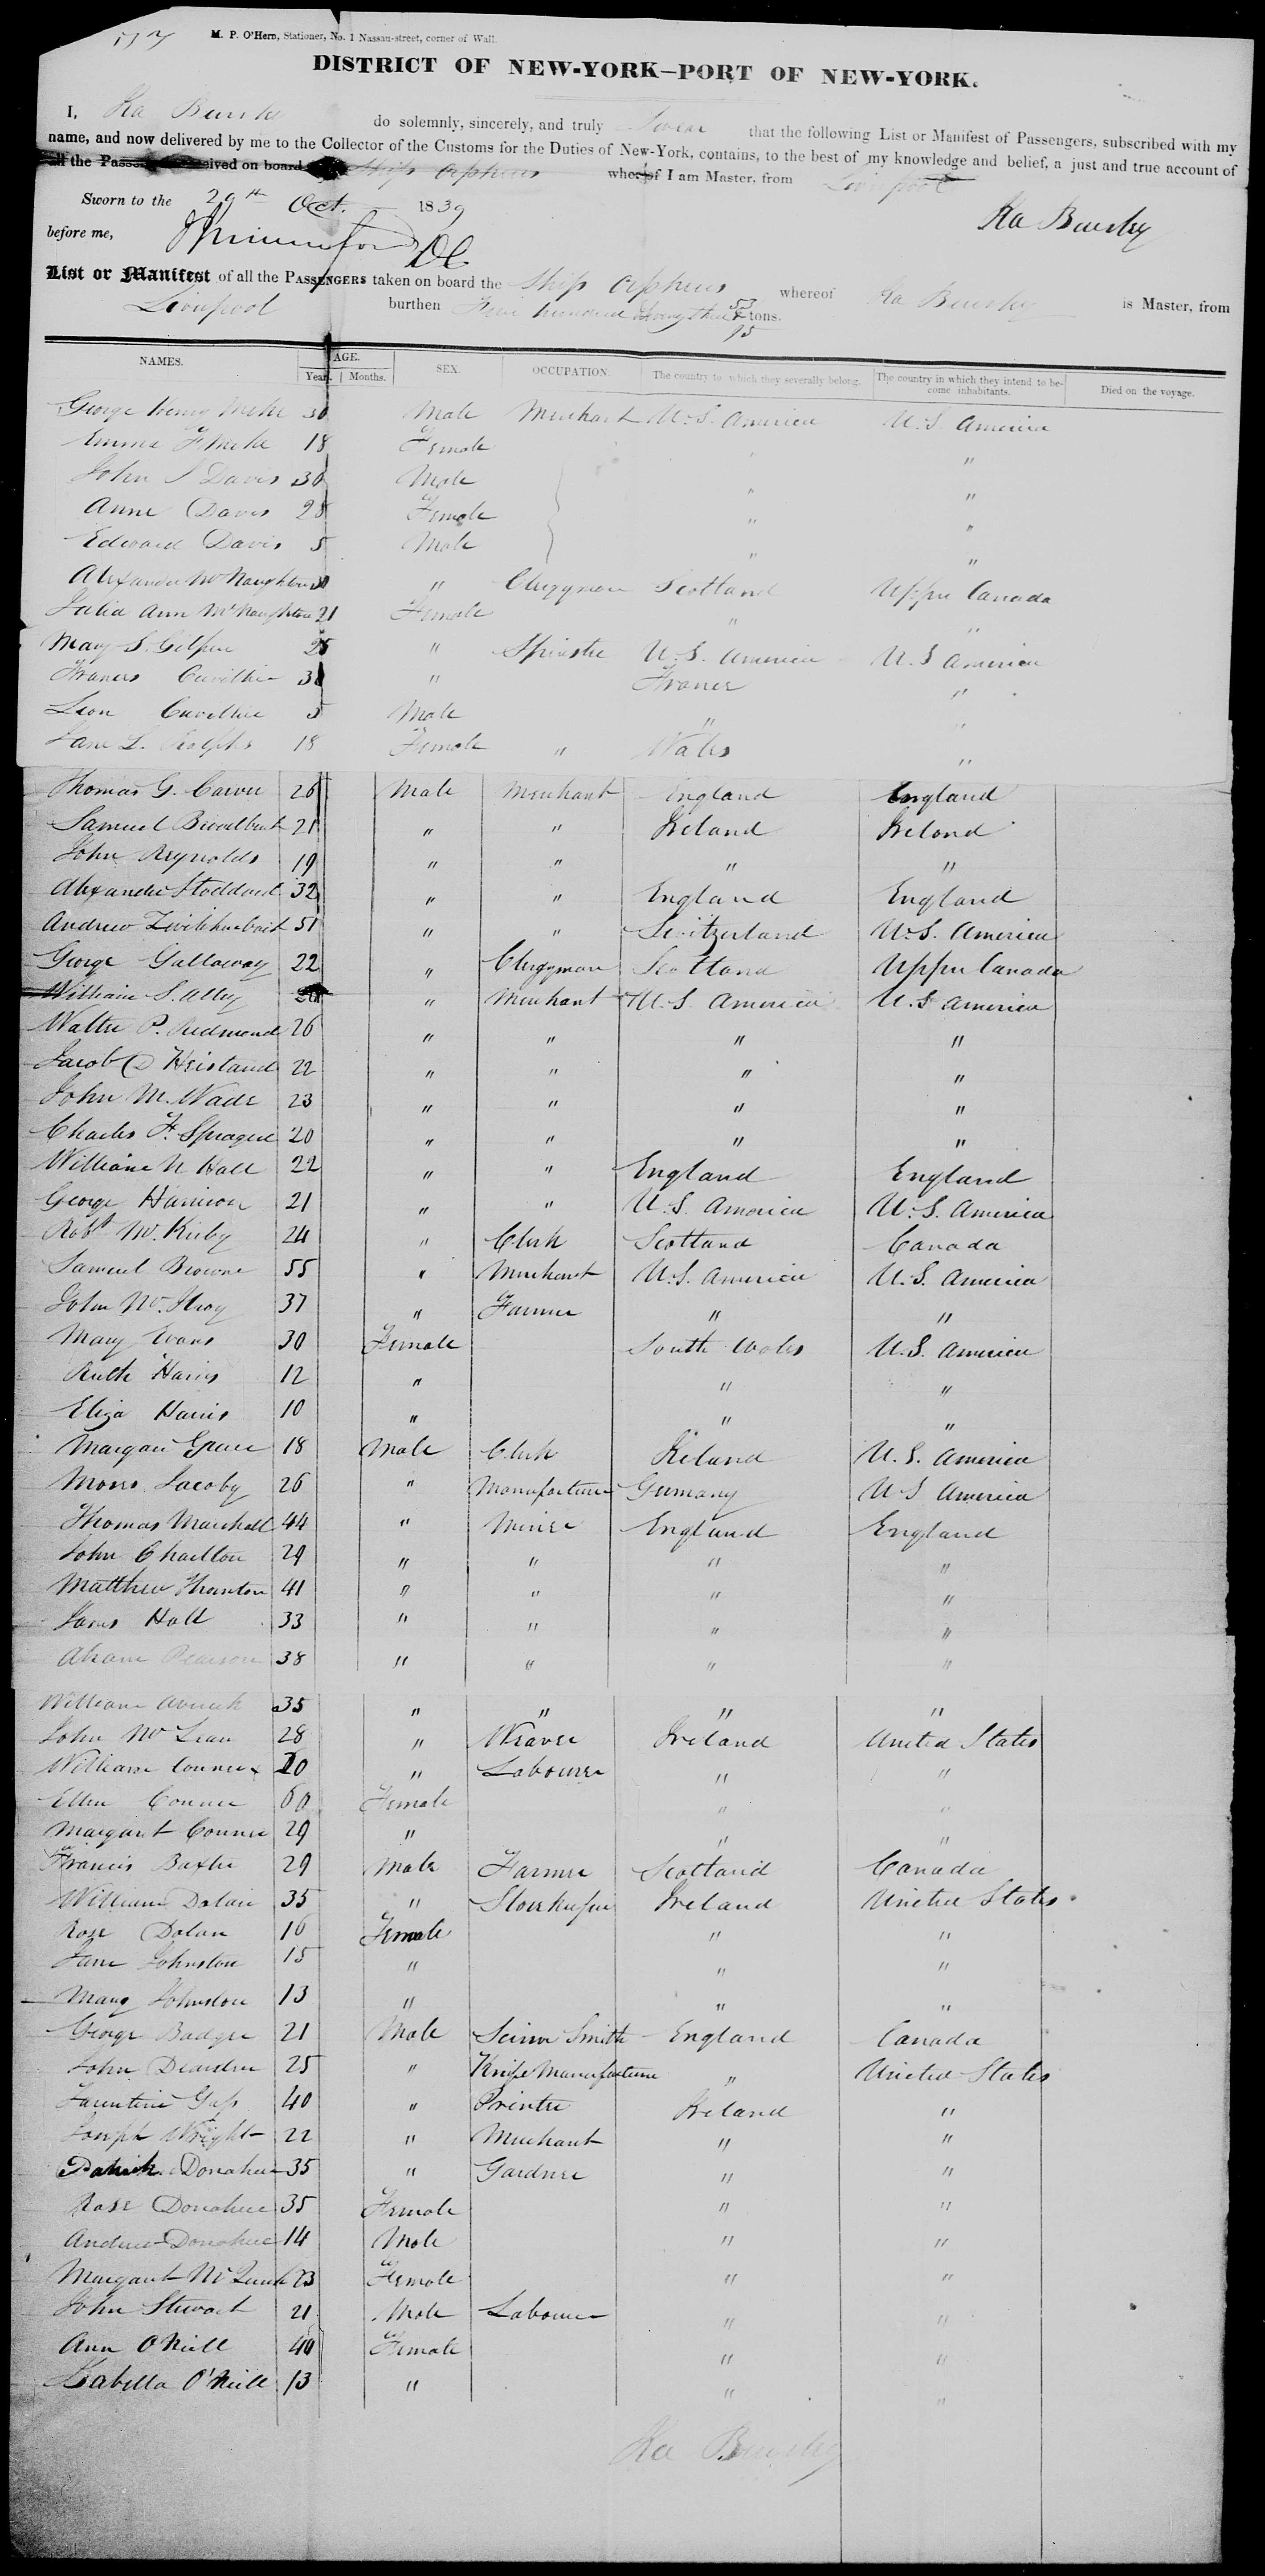 517
M. P. O'Hern, Stationer, No. 1 Nassau-street, corner of Wall.
DISTRICT OF NEW-YORK—PORT OF NEW-YORK.
I, Ira Bursley do solemnly, sincerely, and truly Swear that the following List or Manifest of Passengers, subscribed with my
name, and now delivered by me to the Collector of the Customs for the Duties of New-York, contains, to the best of my knowledge and belief, a just and true account of
all the Passengers received on board Ship Orpheus whereof I am Master, from Liverpool
Sworn to the 29th Oct. 1839
Ira Bursley
before me, DC
List or Manifest of all the PASSENGERS taken on board the Ship Orpheus whereof Ira Bursley is Master, from
Liverpool burthen Five hundred Seventy three 53/95 tons.
NAMES. AGE. SEX. OCCUPATION. The country to which they severally belong. The country in which they intend to become inhabitants. Died on the voyage.
Years. Months.
George Henry 30 Male Merchant U.S. America U.S. America
Emma F 18 Female " "
John J Davis 30 Male " "
Anne Davis 28 Female " "
Edward Davis 5 Male " "
Alexander McNaughton 30 " Clergyman Scotland Upper Canada
Julia Ann McNaughton 21 Female " "
Mary S. Gilpin 25 " Spinster U.S. America U.S America
Frances Cuvillier 31 " France "
Leon Cuvillier 5 Male " "
Jane L. Ralphs 18 Female " Wales "
Thomas G. Carver 26 Male Merchant England England
Samuel 21 " " Ireland Ireland
John Reynolds 19 " " " "
Alexander Stoddard 32 " " England England
Andrew Zwilchenbart 51 " " Switzerland U.S. America
George Galloway 22 " Clergyman Scotland Upper Canada
William S. Alley 20 " Merchant U.S. America U.S America
Walter P. Redmond 26 " " " "
Jacob D Heistand 22 " " " "
John M. Wade 23 " " " "
Charles F. Sprague 20 " " " "
William N Hall 22 " " England England
George Harrison 21 " " U.S. America U.S. America
Robt W. Kirby 24 " Clerk Scotland Canada
Samuel Browne 55 " Merchant U.S. America U.S. America
John McIlroy 37 " Farmer " "
Mary Evans 30 Female South Wales U.S. America
Ruth Harris 12 " " "
Eliza Harris 10 " " "
Morgan Grace 18 Male Clerk Ireland U.S. America
Moses Jacoby 26 " Manufacturer Germany U S America
Thomas Marshall 44 " Miner England England
John Charlton 29 " " " "
Matthew Thornton 41 " " " "
James Hall 33 " " " "
Pearson 38 " " " "
William 35 " " " "
John McLean 28 " Weaver Ireland United States
William Conner 20 " Labourer " "
Ellen Conner 60 Female " "
Margaret Conner 29 " " "
Francis Baxter 29 Male Farmer Scotland Canada
William Dolan 35 " Storekeeper Ireland United States
Rose Dolan 16 Female " "
Jane Johnston 15 " " "
Mary Johnston 13 " " "
George Badger 21 Male Scissor Smith England Canada
John Dearden 25 " Knife Manufacturer " United States
40 " Printer Ireland "
Joseph Wright 22 " Merchant " "
Patrick Donahue 35 " Gardner " "
Rose Donahue 35 Female " "
Andrew Donahue 14 Male " "
Margaret 23 Female " "
John Stewart 21 Male Labourer " "
Ann O'Neill 40 Female " "
Isabella O'Neill 13 " " "
Ira Bursley